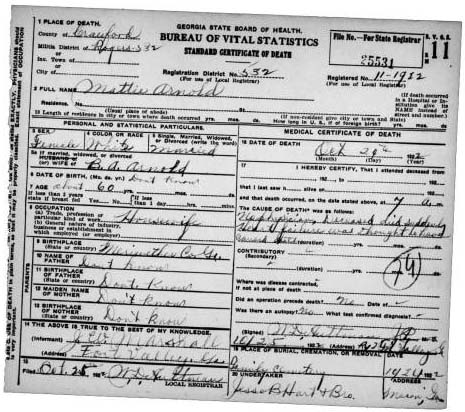 GEORGIA STATE BOARD OF HEALTH.
BUREAU OF VITAL STATISTICS
STANDARD CERTIFICATE OF DEATH
1 PLACE OF DEATH.
County of Crawford
Militia District of Rogers-532
Inc. Town of
City of
Registration District No. 532
File No.—For State Registrar
25531
11
Registered No. 11-1922
(If death occurred in a Hospital or Institution give its NAME instead of street and number.)
2 FULL NAME Mattie Arnold
Residence, No.
(Usual place of abode)
(If non-resident give city or town and State)
Length of residence in city or town where death occurred
How long in U. S., if of foreign birth?
PERSONAL AND STATISTICAL PARTICULARS.
3 SEX
Female
4 COLOR OR RACE
White
5 Single, Married, Widowed, or Divorced (write the word)
Married
If married, widowed, or divorced
HUSBAND of
(or) WIFE of B. A. Arnold
6 DATE OF BIRTH (Mo. da. yr.) Don't Know
7 AGE about 60
8 OCCUPATION
(a) Trade, profession or particular kind of work. Housewife
(b) General nature of Industry, business or establishment in which employed (or employer)
9 BIRTHPLACE Meriwether Co. Ga.
PARENTS
10 NAME OF FATHER Don't Know
11 BIRTHPLACE OF FATHER Don't Know
12 MAIDEN NAME OF MOTHER Don't Know
13 BIRTHPLACE OF MOTHER Don't Know
14 THE ABOVE IS TRUE TO THE BEST OF MY KNOWLEDGE.
(Informant) Marshall
(Address) Fort Valley Ga
15 Filed Oct. 25 1922
LOCAL REGISTRAR
MEDICAL CERTIFICATE OF DEATH
16 DATE OF DEATH
Oct 1922
(Month) (Day) (Year)
17 I HEREBY CERTIFY, That I attended deceased from
that I last saw alive on
and that death occurred, on the date stated above, at 7 a m.
The CAUSE OF DEATH was as follows:
No physician deceased died suddenly
Heart failure was thought to have
caused death
CONTRIBUTORY
(Secondary)
(duration)
74
Where was disease contracted, if not at place of death?
Did an operation precede death? No Date of
Was there an autopsy? No What test confirmed diagnosis?
(Signed)
10/25 (Address)
19 PLACE OF BURIAL, CREMATION, OR REMOVAL DATE
Family Cemetery
20 UNDERTAKER
Jesse B Hart & Bro. Macon, Ga